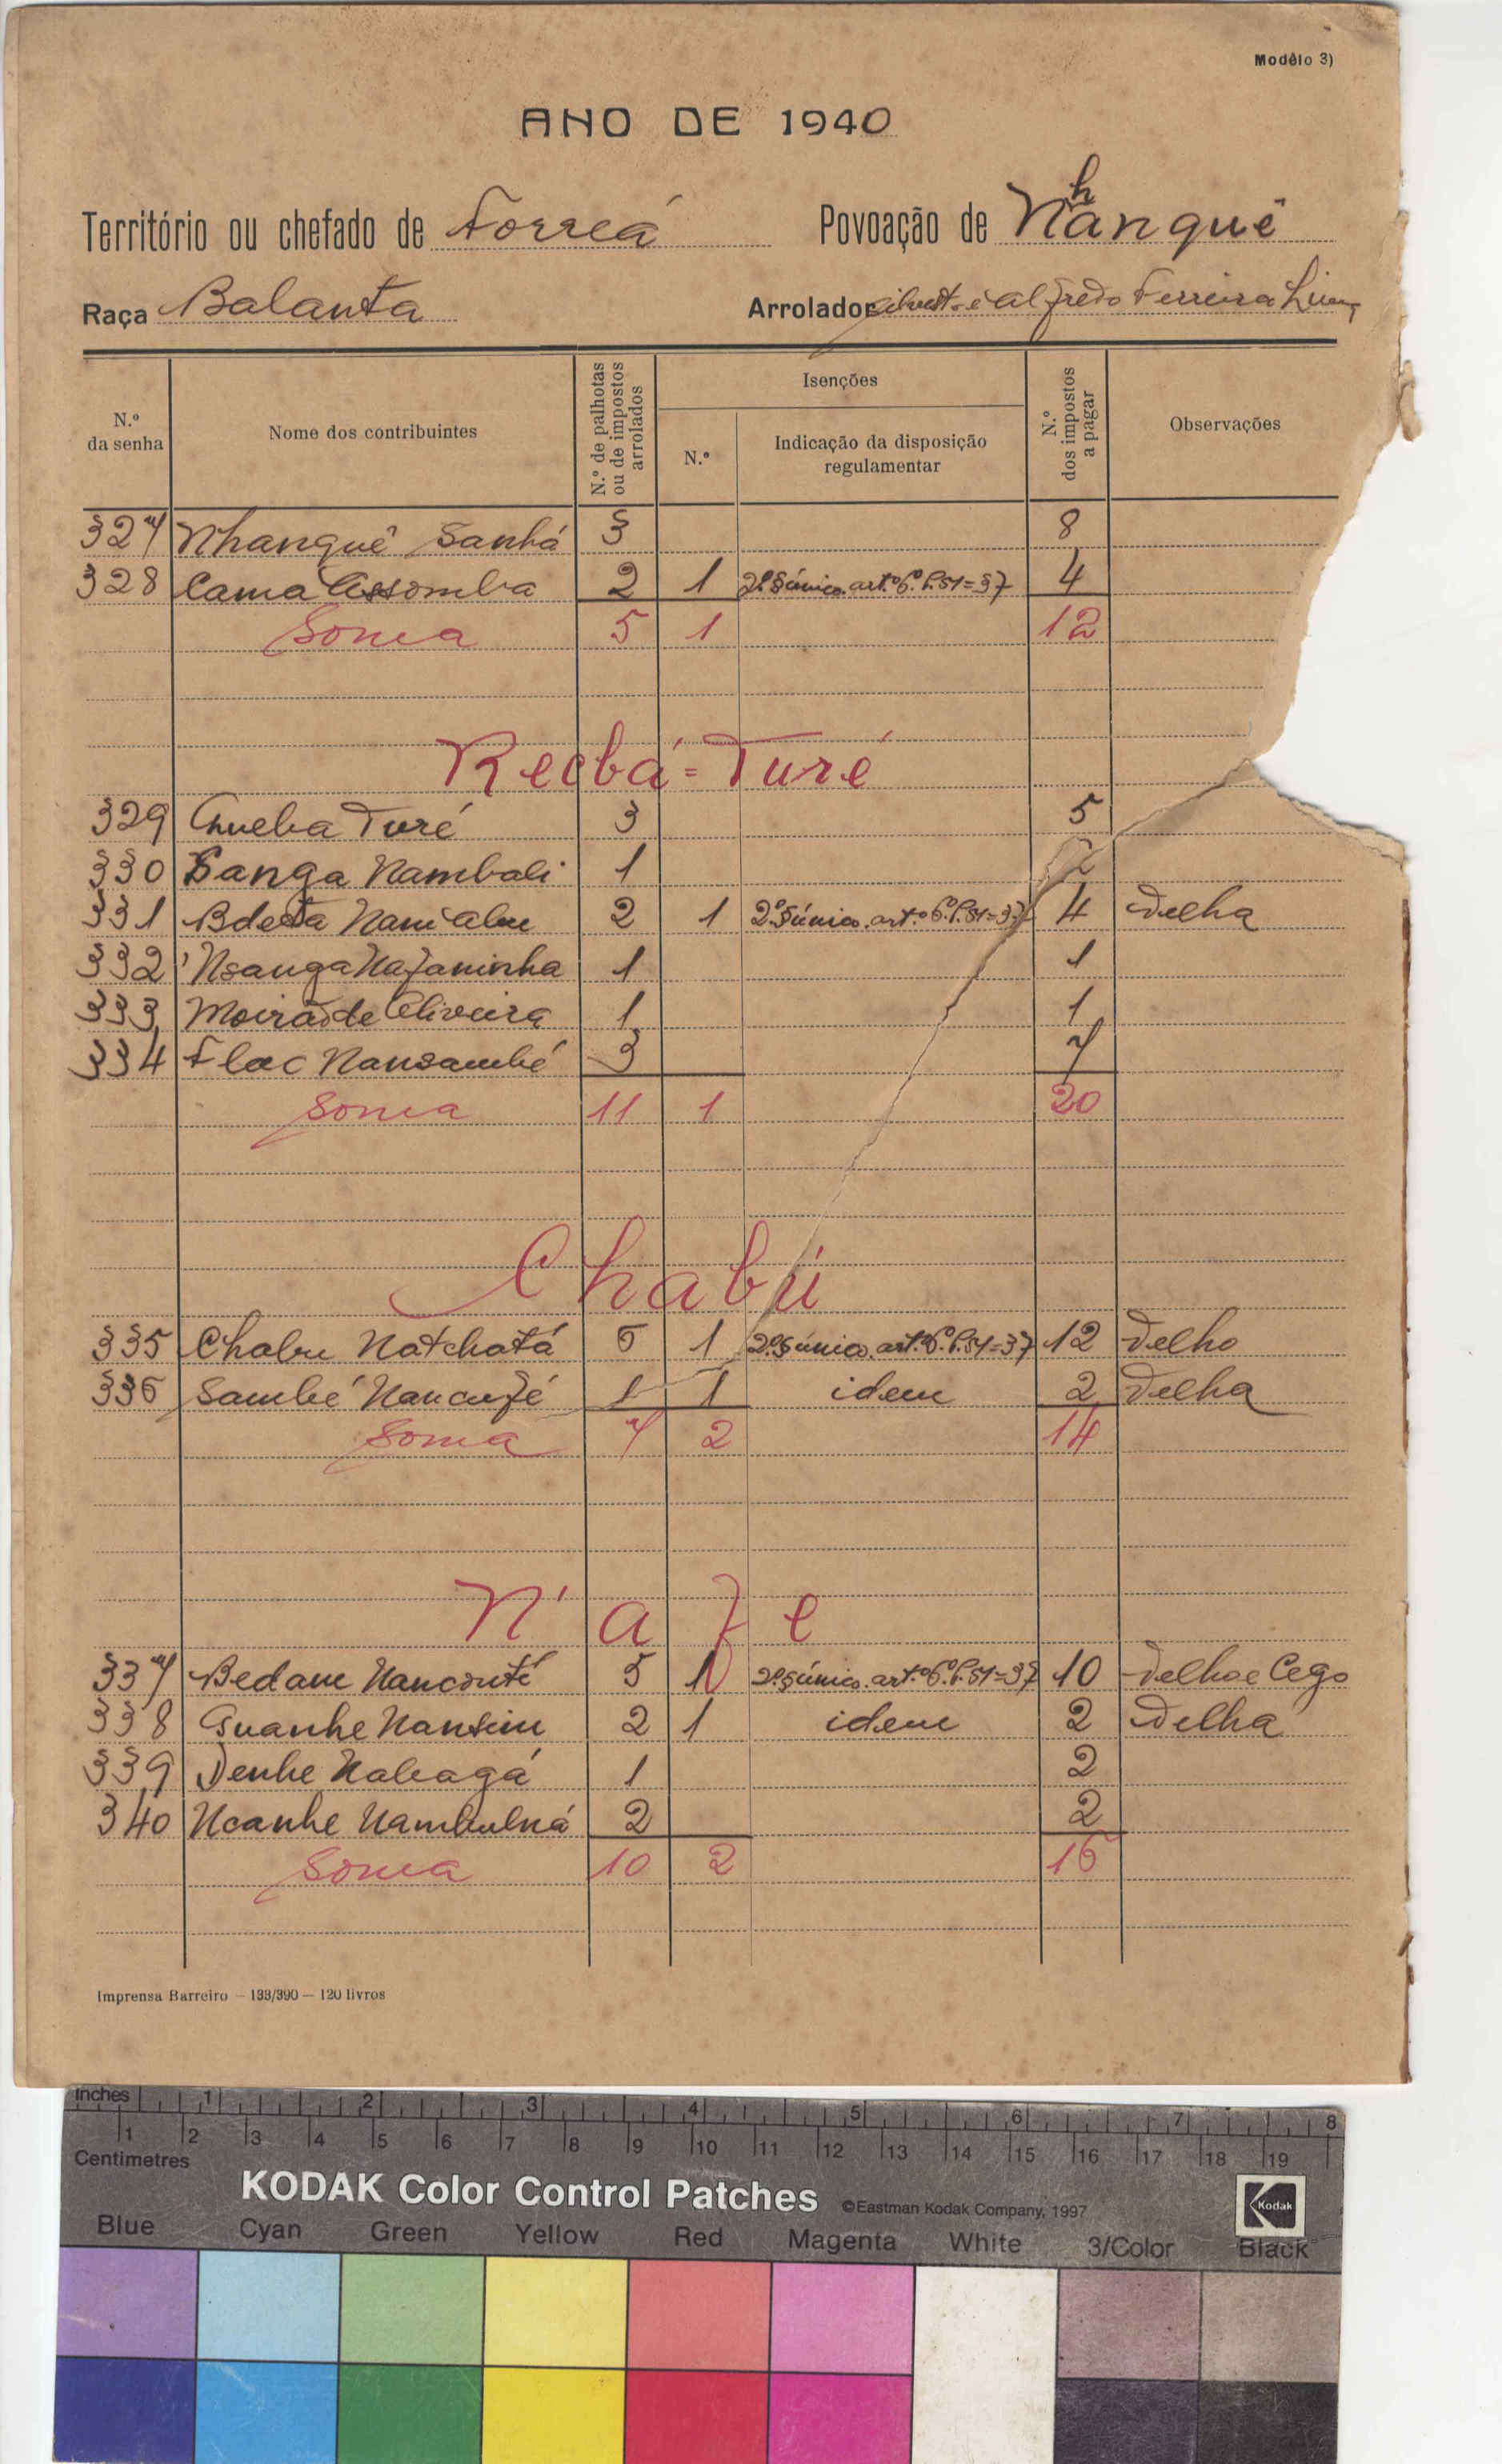 Modêlo 3)
ANO DE 1940
Território ou chefado de Forreá Povoação de Nhanquê
Raça Balanta Arrolador Alfredo Ferreira
N.º da senha
Nome dos contribuintes
N.º de palhotas ou de impostos arrolados
Isenções
N.º
Indicação da disposição regulamentar
N.º dos impostos a pagar
Observações
327 Nhanquê Sanhá 3 8
328 Cama Assomba 2 1 2º § único art.º 6º P. 51=37 4
Soma 5 1 12
Recbá=Turé
329 Turé 3 5
330 Sanga Nambali 1 2
331 2 1 2º § único art.º 6º P. 51=37 4 Velha
332 Nsanga Nafaninha 1 1
333 de Oliveira 1 1
334 Flac Nansambé 3 7
Soma 11 1 20
Chabú
335 Chabu Natchatá 6 1 2º § único art.º 6º P. 51=37 12 Velho
336 Sambé Nancufé 1 1 idem 2 Velha
Soma 7 2 14
N'afe
337 Bedam Nanconté 5 1 2º § único art.º 6º P. 51=37 10 Velho e Cego
338 Guanhe Nansim 2 1 idem 2 Velha
339 Denhe Nabagá 1 2
340 Ncanhe Nambulná 2 2
Soma 10 2 16
Imprensa Barreiro — 133/390 — 120 livros
inches 1 2 3 4 5 6 7 8
1 2 3 4 5 6 7 8 9 10 11 12 13 14 15 16 17 18 19
Centimetres
KODAK Color Control Patches ©Eastman Kodak Company, 1997 Kodak
Blue Cyan Green Yellow Red Magenta White 3/Color Black